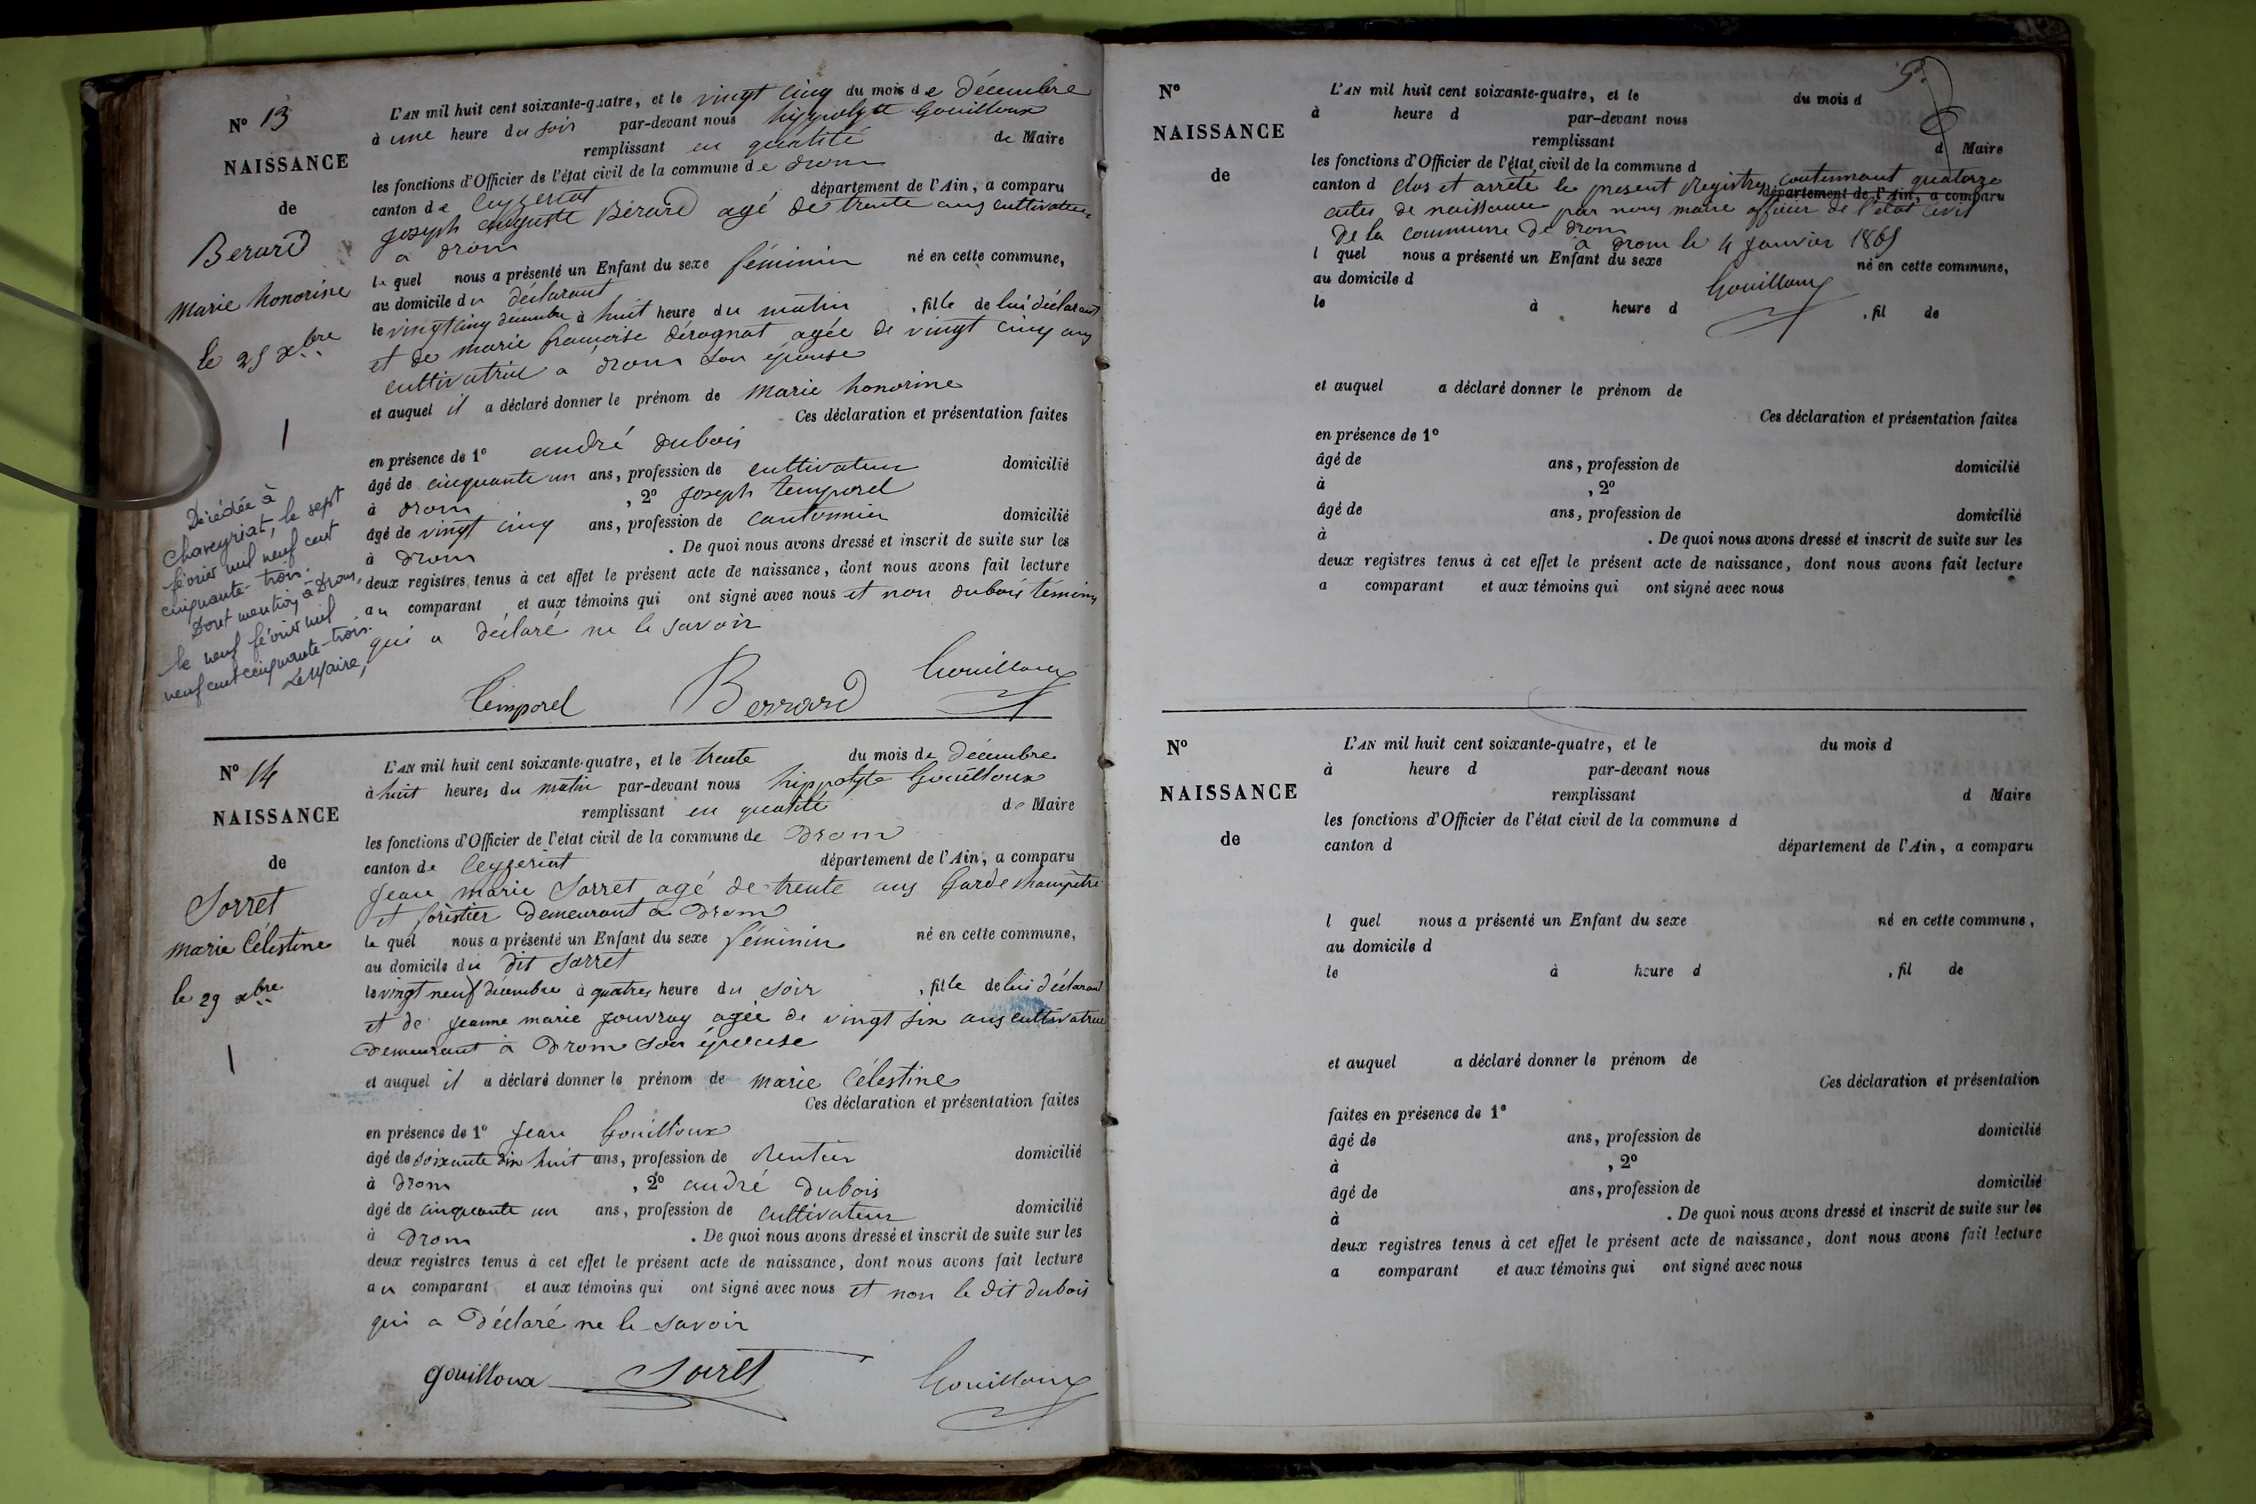 N° 13
NAISSANCE
de
Berard
Marie honorine
le 25 xbre
1
Décédée à
Chaveyriat, le sept
février mil neuf cent
cinquante-trois.
Dont mention à Drom,
le neuf février mil
neuf cent cinquante-trois.
Le Maire,
L'AN mil huit cent soixante-quatre, et le vingt cinq du mois de décembre
à une heure du soir par-devant nous hyppolyte Gouilloux
remplissant en qualité de Maire
les fonctions d'Officier de l'état civil de la commune de drom
canton de Ceyzeriat département de l'Ain, a comparu
joseph auguste Bérard agé de trente ans cultivateur
a drom
le quel nous a présenté un Enfant du sexe féminin né en cette commune,
au domicile du déclarant
le vingt cinq decembre à huit heure du matin , fille de lui déclarant
et de marie francoise dérognat agée de vingt cinq ans
cultivatrice a drom son épouse
et auquel il a déclaré donner le prénom de Marie honorine
Ces déclaration et présentation faites
en présence de 1° andré dubois
âgé de cinquante un ans, profession de cultivateur domicilié
à drom , 2° joseph temporel
âgé de vingt cinq ans, profession de cantonnier domicilié
à drom . De quoi nous avons dressé et inscrit de suite sur les
deux registres tenus à cet effet le présent acte de naissance, dont nous avons fait lecture
au comparant et aux témoins qui ont signé avec nous et non dubois témoins
qui a déclaré ne le savoir
Temporel Berrard Gouilloux
N° 14
NAISSANCE
de
Sorret
marie Célestine
le 29 xbre
1
L'AN mil huit cent soixante-quatre, et le trente du mois de Décembre
à huit heures du matin par-devant nous hippolyte Gouilloux
remplissant en qualité de Maire
les fonctions d'Officier de l'état civil de la commune de Drom
canton de Ceyzeriat département de l'Ain, a comparu
Jean marie Sorret agé de trente ans Garde champêtre
et forestier Demeurant a Drom
le quel nous a présenté un Enfant du sexe féminin né en cette commune,
au domicile du dit Sorret
le vingt neuf decembre à quatres heure du soir , fille de lui déclarant
et de jeanne marie jouvray agée de vingt six ans cultivatrice
Demeurant à Drom son épouse
et auquel il a déclaré donner le prénom de marie Célestine
Ces déclaration et présentation faites
en présence de 1° Jean Gouilloux
âgé de soixante dix huit ans, profession de Rentier domicilié
à Drom , 2° andré dubois
âgé de cinquante un ans, profession de cultivateur domicilié
à Drom . De quoi nous avons dressé et inscrit de suite sur les
deux registres tenus à cet effet le présent acte de naissance, dont nous avons fait lecture
au comparant et aux témoins qui ont signé avec nous et non le dit dubois
qui a Déclaré ne le savoir
gouilloux Sorret Gouilloux
N°
NAISSANCE
de
L'AN mil huit cent soixante-quatre, et le du mois d
à heure d par-devant nous
remplissant d Maire
les fonctions d'Officier de l'état civil de la commune d
canton d département de l'Ain, a comparu
clos et arrêté le present Registre contennant quatorze
actes de naissance par nous maire officier de l'état civil
de la commune de drom
a drom le 4 janvier 1865
Gouilloux
l quel nous a présenté un Enfant du sexe né en cette commune,
au domicile d
le à heure d , fil de
et auquel a déclaré donner le prénom de
Ces déclaration et présentation faites
en présence de 1°
âgé de ans, profession de domicilié
à , 2°
âgé de ans, profession de domicilié
à . De quoi nous avons dressé et inscrit de suite sur les
deux registres tenus à cet effet le présent acte de naissance, dont nous avons fait lecture
a comparant et aux témoins qui ont signé avec nous
N°
NAISSANCE
de
L'AN mil huit cent soixante-quatre, et le du mois d
à heure d par-devant nous
remplissant d Maire
les fonctions d'Officier de l'état civil de la commune d
canton d département de l'Ain, a comparu
l quel nous a présenté un Enfant du sexe né en cette commune,
au domicile d
le à heure d , fil de
et auquel a déclaré donner le prénom de
Ces déclaration et présentation
faites en présence de 1°
âgé de ans, profession de domicilié
à , 2°
âgé de ans, profession de domicilié
à . De quoi nous avons dressé et inscrit de suite sur les
deux registres tenus à cet effet le présent acte de naissance, dont nous avons fait lecture
a comparant et aux témoins qui ont signé avec nous